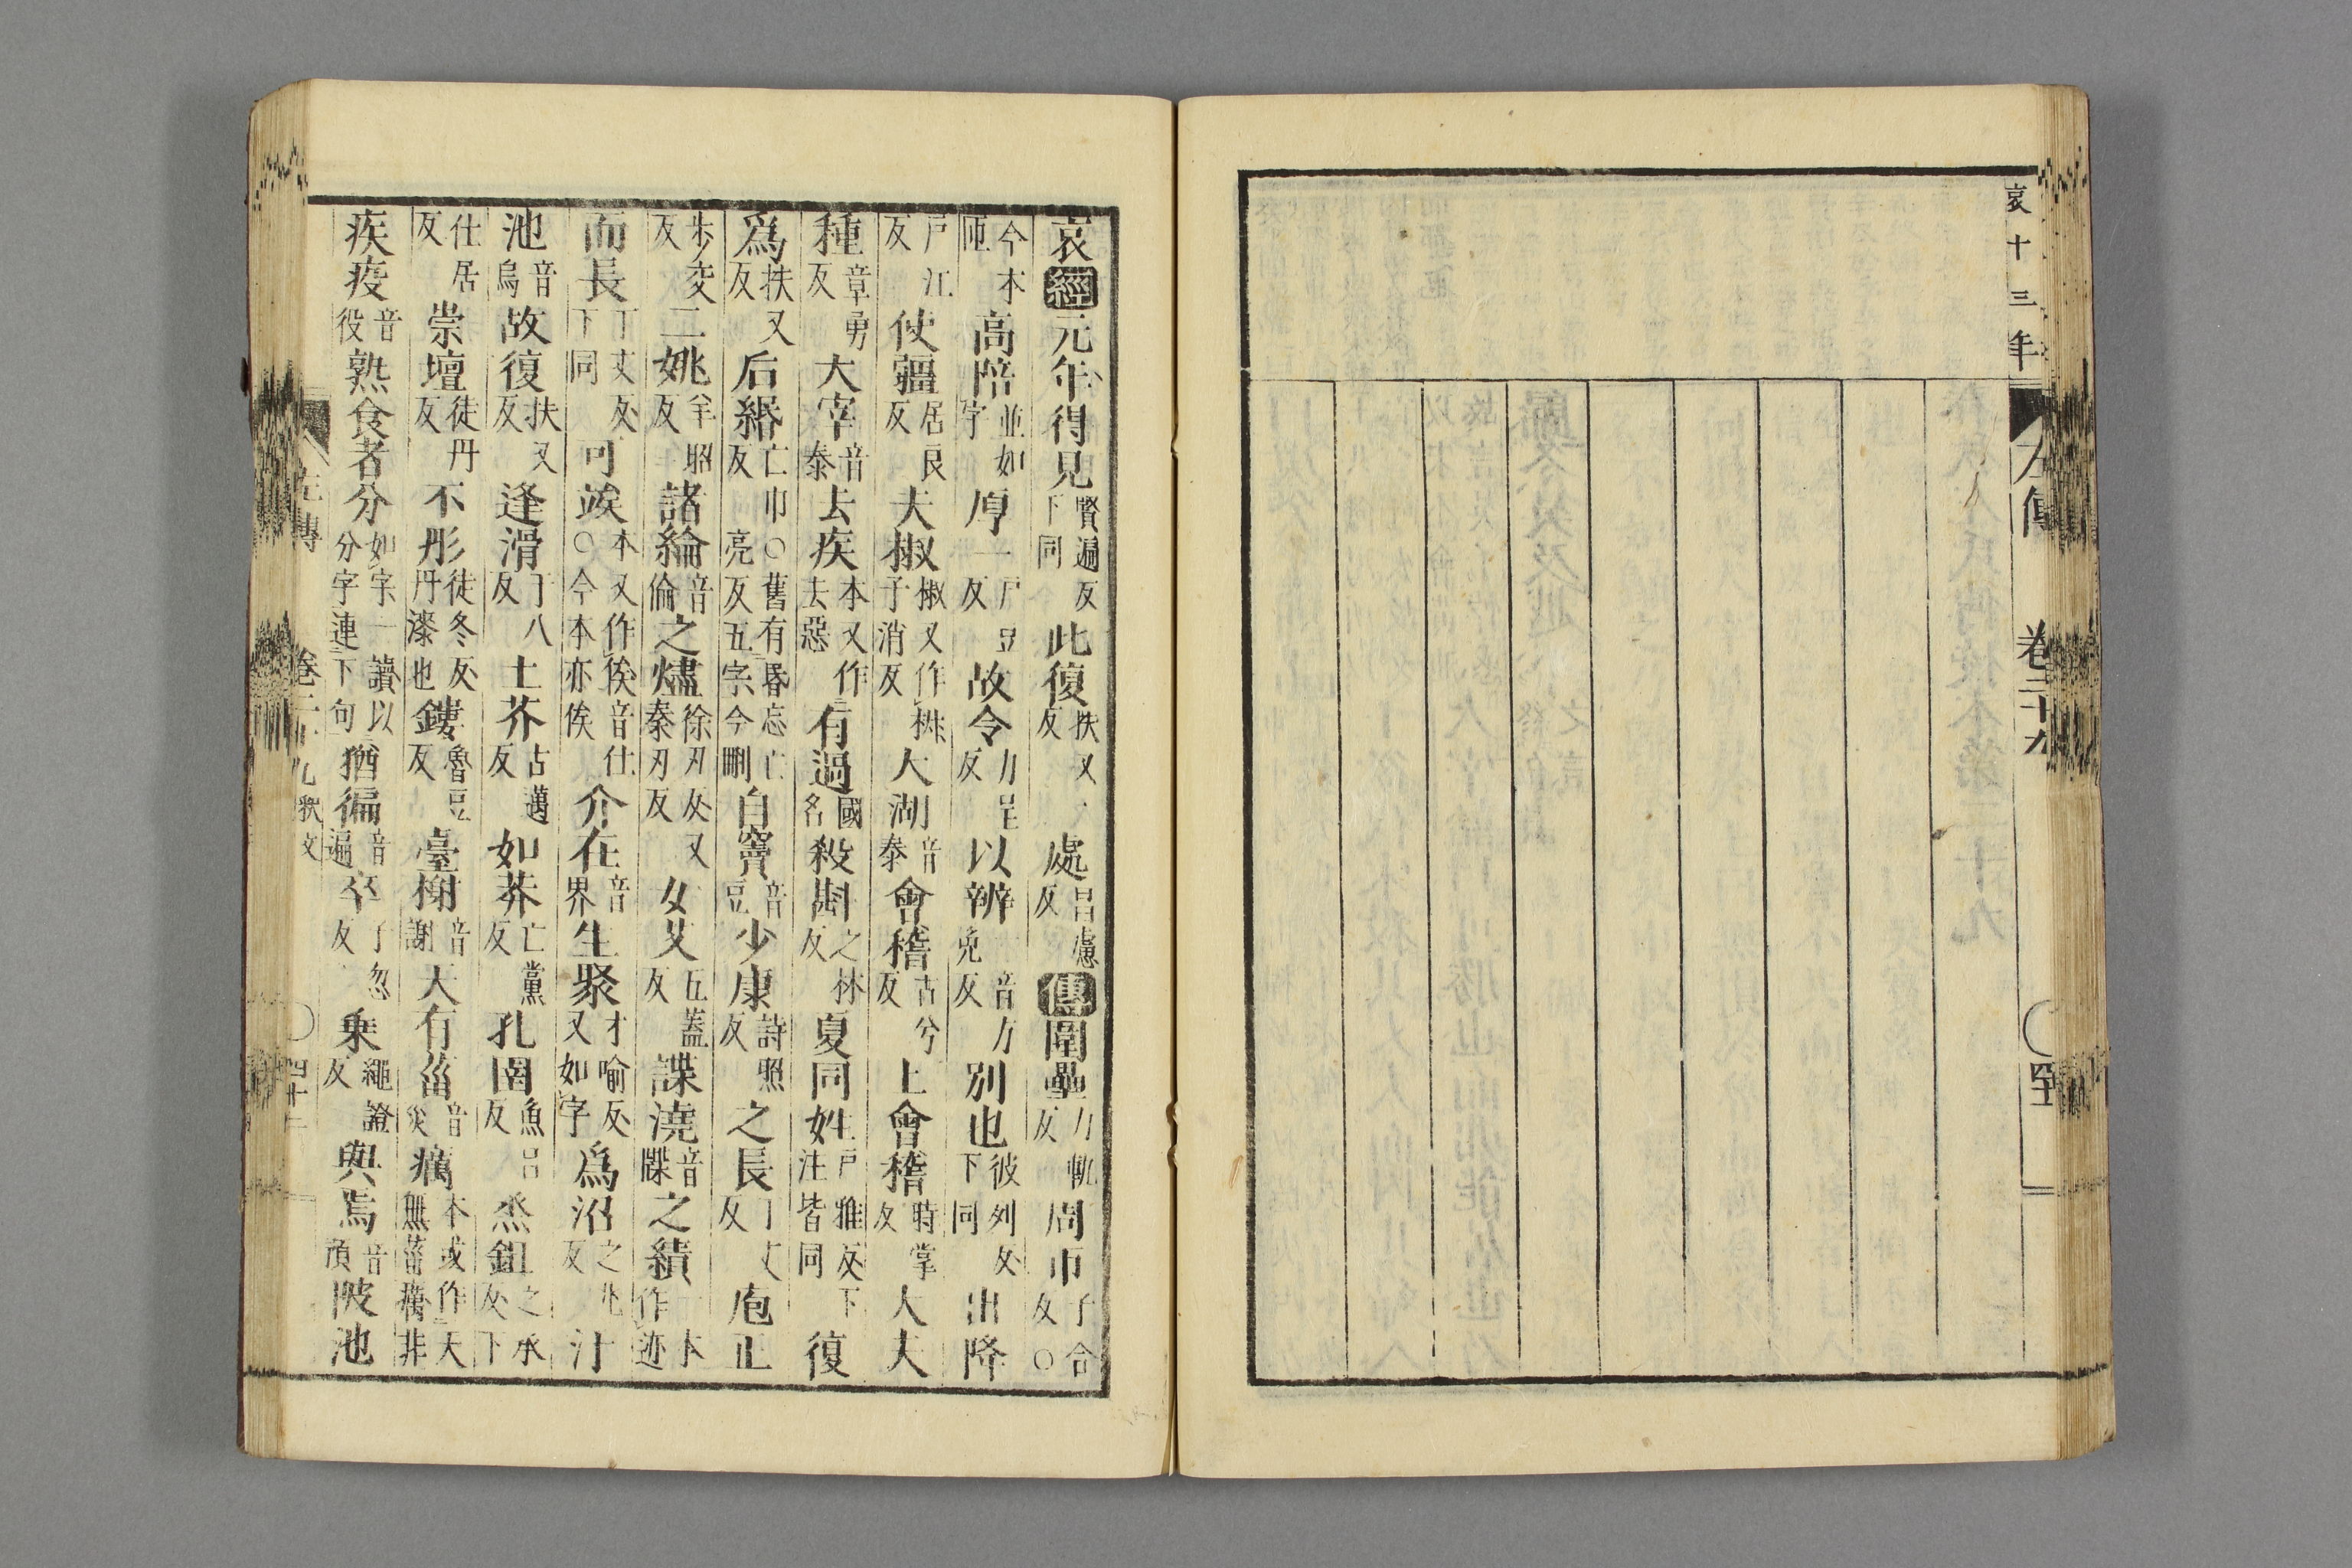 哀十三年
左傳 卷二十九
哀經元年得見賢遍反下同此復扶又反處昌慮反傳圍壘力軌反周帀子合反○
今本匝高陪並如字厚一戶豆反故令力呈反以辨音方免反別也彼列反下同出降
戶江反使疆居良反夫椒椒又作子消反大湖音泰會稽古兮反上會稽時掌反大夫
種章勇反大宰音泰去疾本又作去惡有過國名殺斟之林反夏同姓戶雅反下注皆同復
爲扶又反后緡亡巾反○舊有昬忘亡亮反五字今刪自竇音豆少康詩照反之長丁丈反庖正
步交反二姚羊照反諸綸音倫之燼徐刃反又秦刃反女艾五蓋反諜澆音牒之績一本作迹
而長丁丈反下同可竢本又作俟音仕○今本亦俟介在音界生聚才喻反又如字爲沼之兆反汙
池音烏故復扶又反逢滑于八反土芥古邁反如莽亡黨反孔圉魚呂反烝鉏之承反下
仕居反崇壇徒丹反不彤徒冬反丹漆也鏤魯豆反臺榭音謝天有菑音災癘本或作天無菑癘非
疾疫音役熟食者分如字一讀以分字連下句猶徧音遍卒子忽反乘繩證反與焉音陂池
左傳 卷二十九釋文 四十二